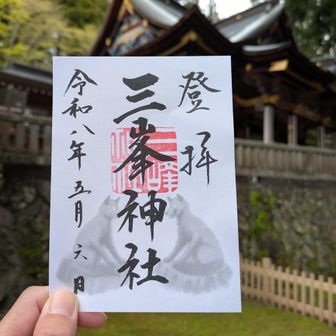 登拝
三峯神社
令和八年五月六日